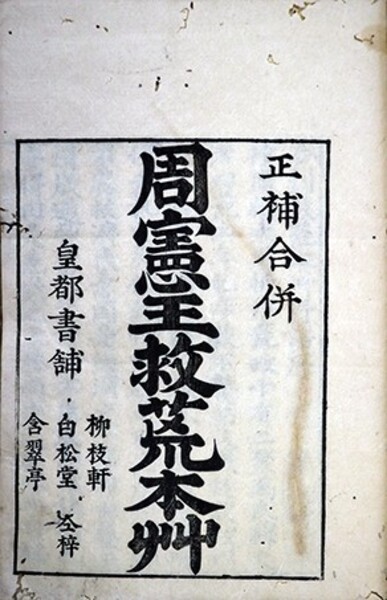 正補合併
周憲王救荒本艸
皇都書舗
柳枝軒
白松堂 仝梓
含翠亭